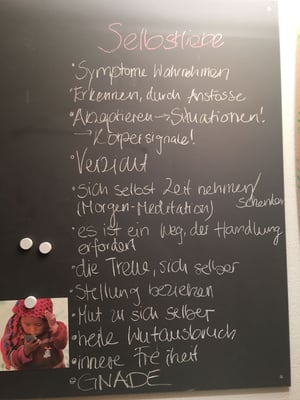 Selbstliebe
• Symptome Wahrnehmen
• Erkennen, durch Anstösse
• Akzeptieren → Situationen!
→ Körpersignale!
• Verzicht
• sich selbst Zeit nehmen/
(Morgen-Meditation) schenken
• es ist ein Weg, der Handlung
erfordert
• die Treue, sich selber
• Stellung beziehen
• Mut zu sich selber
• heile Wutausbruch
• innere Freiheit
• GNADE